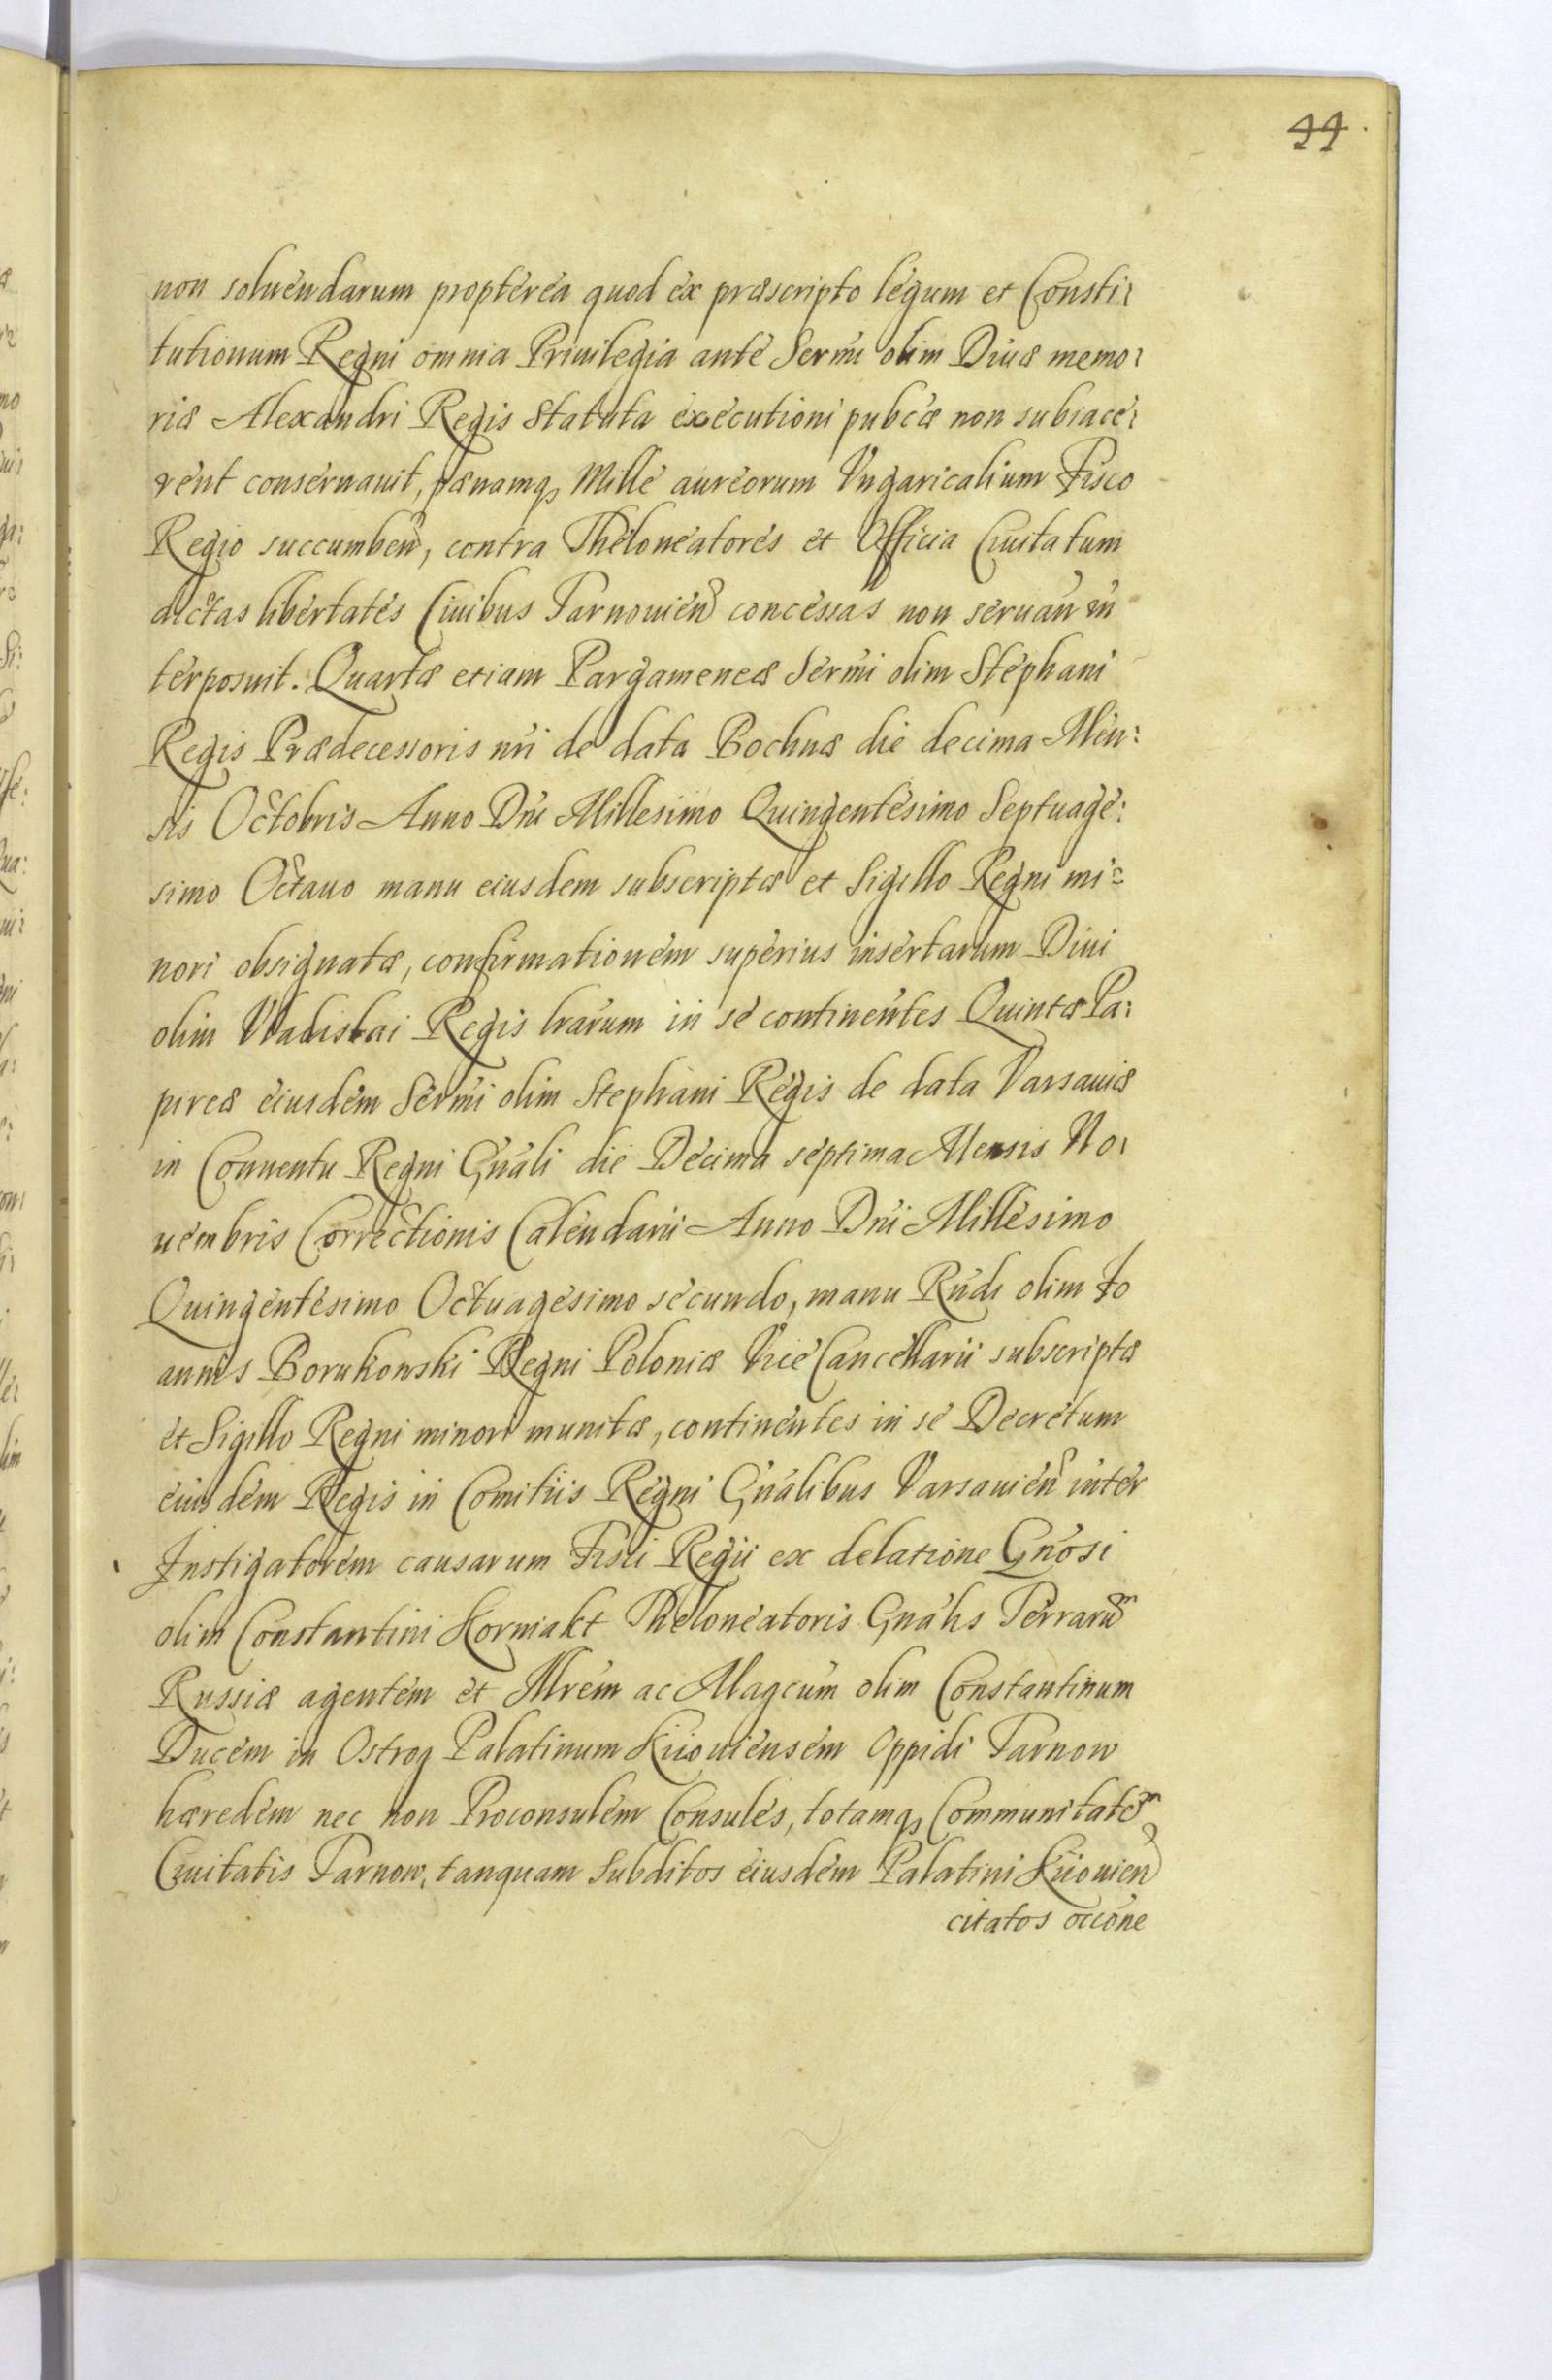 44.
non soluendarum proptereа quod ex præscripto legum et Consti:
tutionum Regni omnia Priuilegia ante Sermi olim Diuæ memo:
riæ Alexandri Regis Statuta executioni pubcæ non subiace:
rent conseruauit, pænamq, Mille aureorum Vngaricalium Fisco
Regio succumben, contra Theloneatores et Officia Ciuitatum
dictas libertates Ciuibus Tarnouien concessas non seruan in
terposuit. Quartæ etiam Pargameneæ Sermi olim Stephani
Regis Prædecessoris nri de data Bochnæ die decima Men:
sis Octobris Anno Dni Millesimo Quingentesimo Septuage:
simo Octauo manu eiusdem subscriptæ et Sigillo Regni mi:
nori obsignatæ, confirmationem superius insertarum Diui
olim Vladislai Regis lrarum in se continentes Quintæ Pa:
pireæ eiusdem Sermi olim Stephani Regis de data Varsauiæ
in Conuentu Regni Gnali die Decima septima Mensis No:
uembris Correctionis Calendarii Anno Dni Millesimo
Quingentesimo Octuagesimo secundo, manu Rndi olim Jo
annis Borukowski Regni Poloniæ Vice Cancellarii subscriptæ
et Sigillo Regni minori munitæ, continentes in se Decretum
eiusdem Regis in Comitiis Regni Gnalibus Varsauien inter
Instigatorem causarum Fisci Regii ex delatione Gnosi
olim Constantini Korniakt Theloneatoris Gnalis Terraru
Russiæ agentem et Illrem ac Magcum olim Constantinum
Ducem in Ostrog Palatinum Kiiouiensem Oppidi Tarnow
hæredem nec non Proconsulem Consules, totamq, Communitatem
Ciuitatis Tarnow, tanquam Subditos eiusdem Palatini Kiiouien
citatos occone